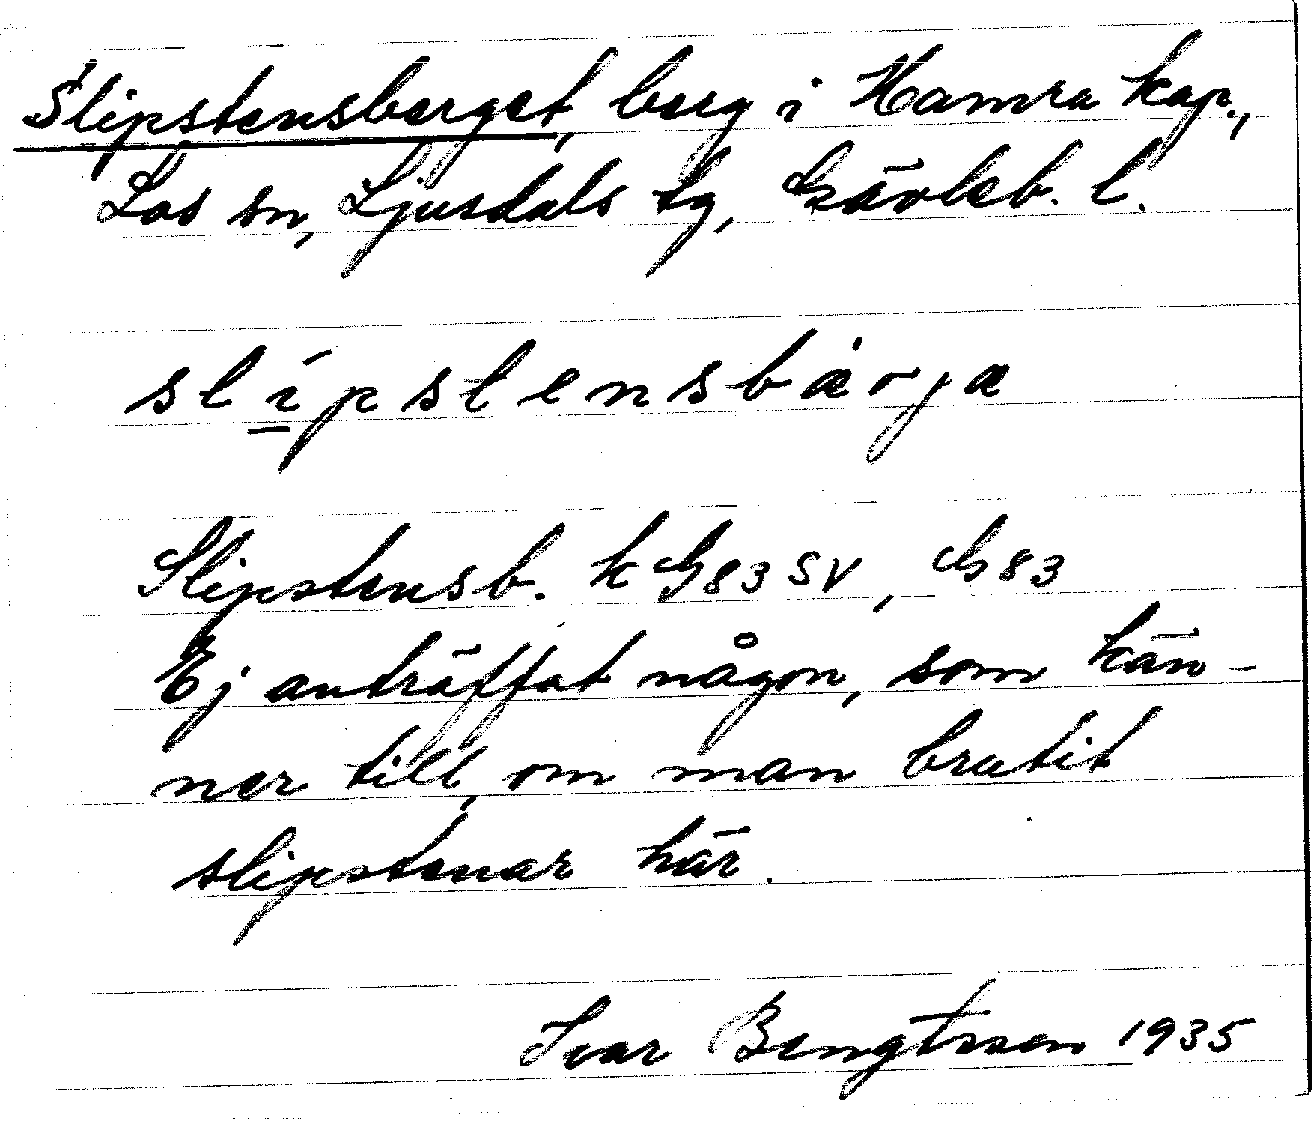 Slipstensberget, berg i Hamra kap.,
Los sn, Ljusdals tg, Gävleb. l.
slípstensbȧrjæ
Slipstensb. k G83 SV, G83
Ej anträffat någon, som kän-
ner till, om man brutit
slipstenar här.
Ivar Bengtsson 1935